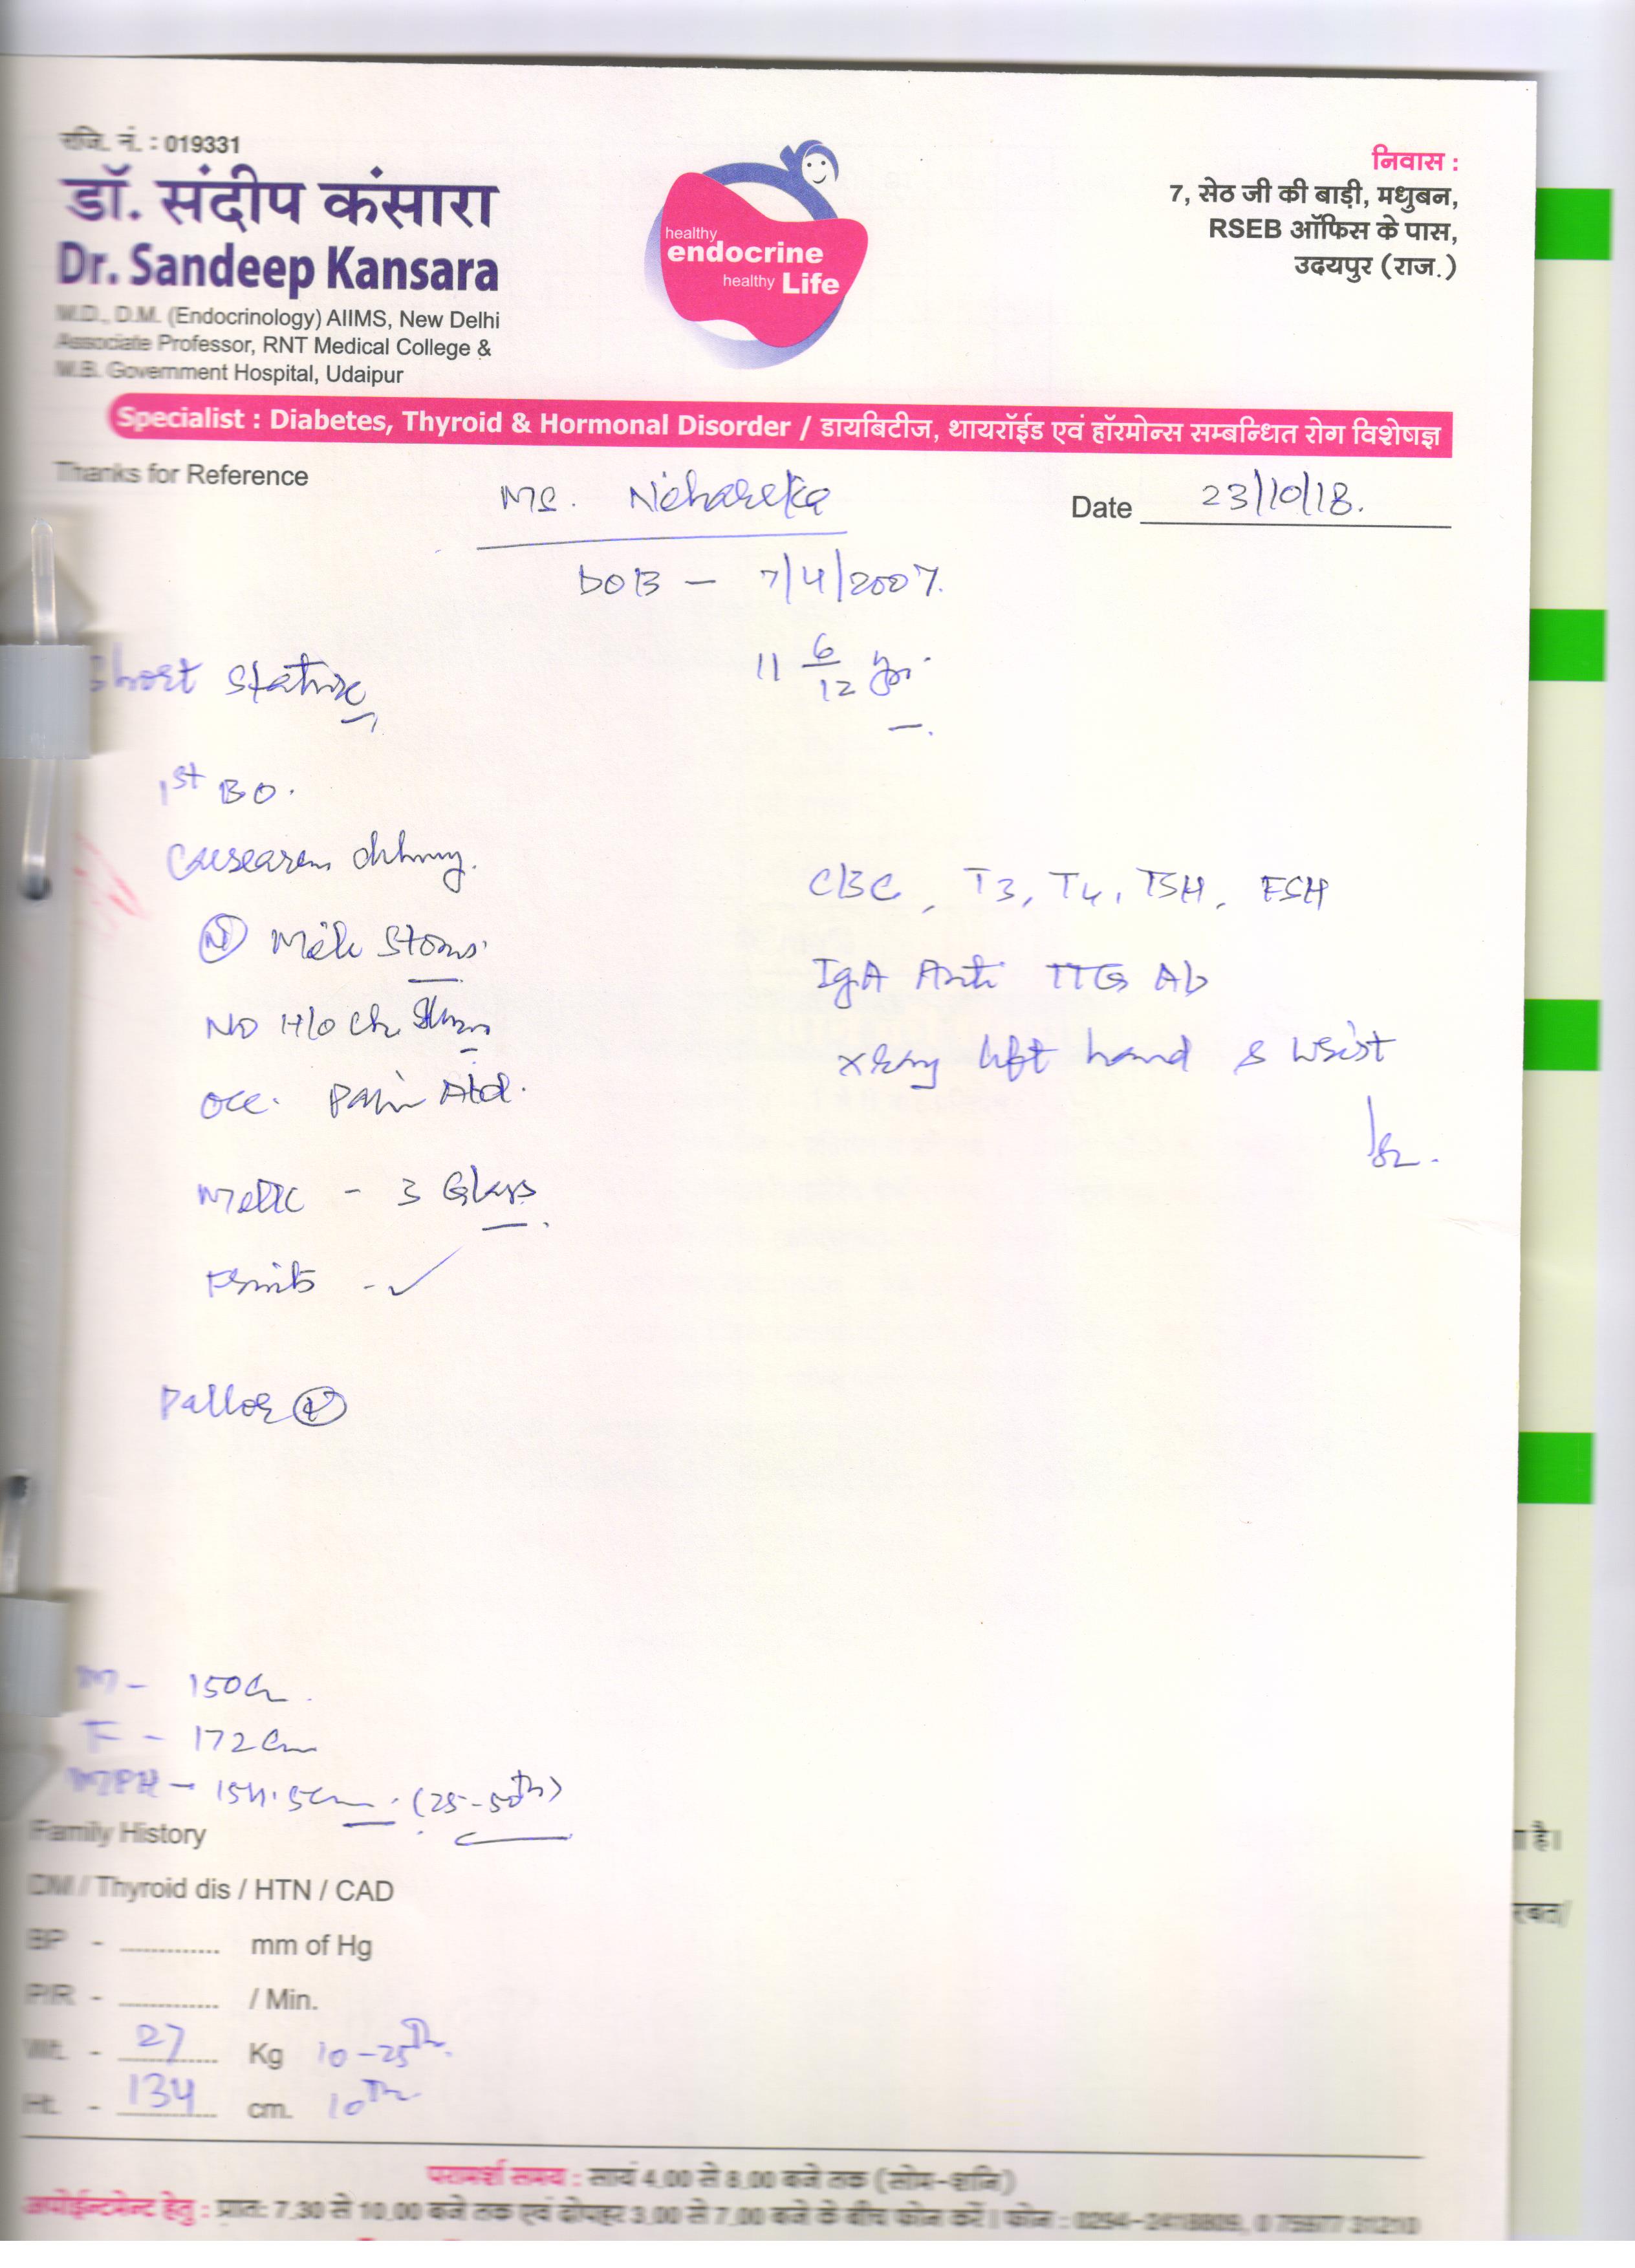 रजि. नं. : 019331
डॉ. संदीप कंसारा
Dr. Sandeep Kansara
M.D., D.M. (Endocrinology) AIIMS, New Delhi
Associate Professor, RNT Medical College &
M.B. Government Hospital, Udaipur
healthy
endocrine
healthy Life
निवास :
7, सेठ जी की बाड़ी, मधुबन,
RSEB ऑफिस के पास,
उदयपुर (राज.)
Specialist : Diabetes, Thyroid & Hormonal Disorder / डायबिटीज, थायरॉईड एवं हॉरमोन्स सम्बन्धित रोग विशेषज्ञ
Thanks for Reference
Ms. Nihareka
Date 23/10/18.
DOB - 7/4/2007.
11 6/12 yr.
Short Stature
1st BO.
Caesarean delivery.
(N) Mile Stones.
No H/o Ch
Occ. Pain Abd.
Milk - 3 Glass.
Fruits - ✓
Pallor (+)
CBC, T3, T4, TSH, ESH
IgA Anti TTG Ab
Xray left hand & wrist
M - 150cm.
F - 172cm
MPH - 154.5cm. (25-50th)
Family History
DM / Thyroid dis / HTN / CAD
BP - ............. mm of Hg
P/R - ............. / Min.
Wt. - 27 Kg 10-25th.
Ht. - 134 cm. 10th
परामर्श समय : सायं 4.00 से 8.00 बजे तक (सोम-शनि)
अपोईन्टमेन्ट हेतु : प्रातः 7.30 से 10.00 बजे तक एवं दोपहर 3.00 से 7.00 बजे के बीच फोन करें। फोन :